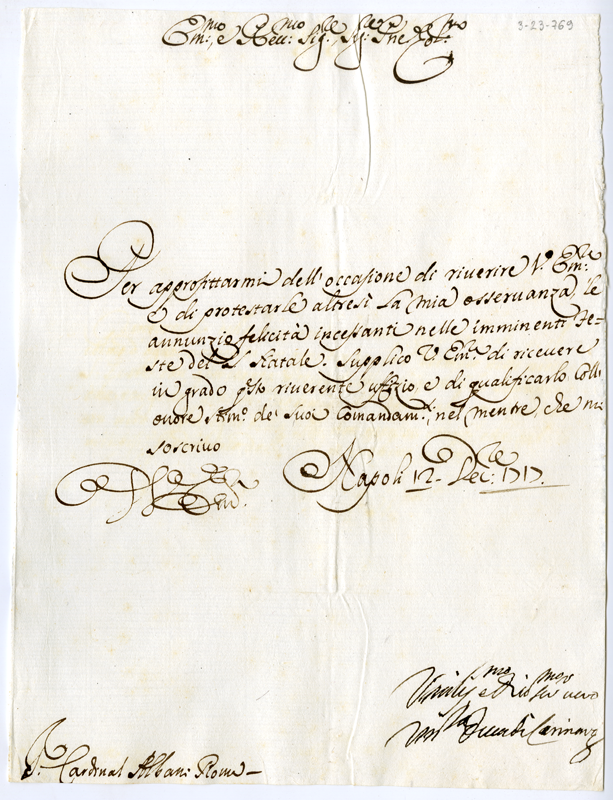 3-23-769
Em:mo e Reu:mo Sig:re Sig:re Pne Col:mo
Per approfittarmi dell' occasione di riuerire V. Em:za
e di protestarle altresì la mia osseruanza, le
annunzio felicità incessanti nelle imminenti Fe-
ste del S. Natale. Supplico V. Em:za di riceuere
in grado q̃sto riuerente uffizio, e di qualificarlo coll'
onore stim:o de' suoi Comandam:ti, nel mentre, che mi
soscriuo
Napoli 12 Dec:re 1717.
V. Em:
Duca di
S.r Cardinal Albani Roma